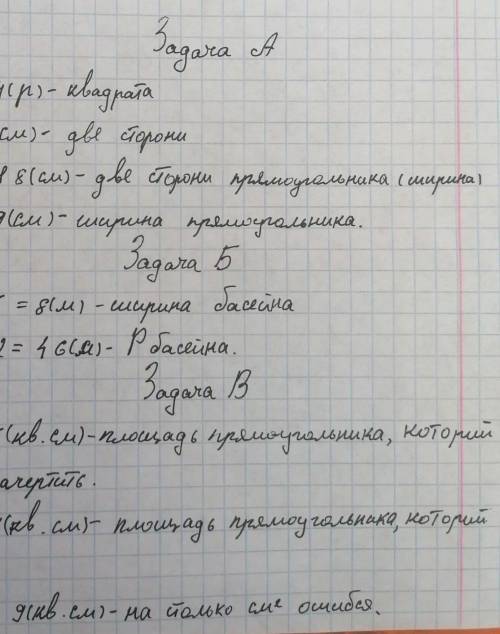 Задача А
(р) - квадрата
(см) - две сторони
8(см) - две сторони прямоугольника (ширина)
9(см) - ширина прямоугольника.
Задача Б
= 8(м) - ширина басейна
2 = 46(м) - Р басейна.
Задача В
(кв.см) - площадь прямоугольника, который
ачертить.
(кв.см) - площадь прямоугольника, который
9(кв.см) - на столько см² ошибся.